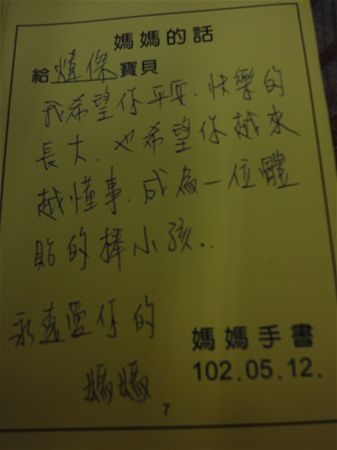 媽媽的話
給煒傑寶貝
我希望你平安、快樂的
長大、也希望你越來
越懂事、成為一位體
貼的棒小孩..
永遠愛你的
媽媽
媽媽手書
102.05.12.
7